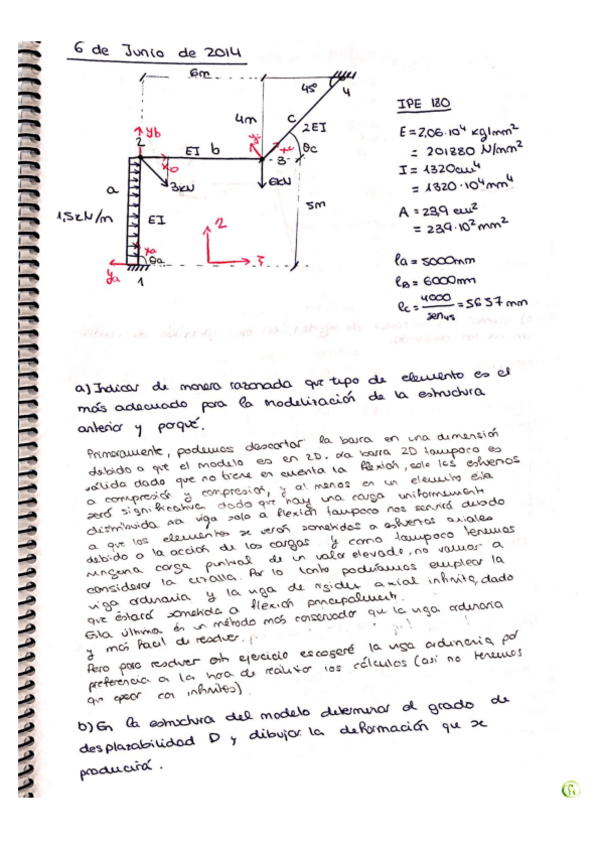 6 de Junio de 2014
6m
45º
4
4m
c
2EI
IPE 180
yb
2
EI b
θc
3
E = 2,06·10⁴ kg/mm²
= 201880 N/mm²
I = 1320cm⁴
= 1320·10⁴mm⁴
a
3kN
6kN
5m
1,5kN/m
EI
A = 23,9 cm²
= 23,9·10² mm²
2
xa
θa
ya
1
la = 5000mm
lB = 6000mm
lc = 4000/sen45 = 5657 mm
a) Indicar de manera razonada que tipo de elemento es el
más adecuado para la modelización de la estructura
anterior y porqué.
Primeramente, podemos descartar la barra en una dimensión
debido a que el modelo es en 2D. La barra 2D tampoco es
válida dado que no tiene en cuenta la flexión, solo los esfuerzos
a compresión y compresión, y al menos en un elemento ésta
será significativa dado que hay una carga uniformemente
distribuida. La viga solo a flexión tampoco nos servirá debido
a que los elementos se verán sometidos a esfuerzos axiales
debido a la acción de las cargas y como tampoco tenemos
ninguna carga puntual de un valor elevado, no vamos a
considerar la cizalla. Por lo tanto podríamos emplear la
viga ordinaria y la viga de rigidez axial infinita, dado
que estará sometida a flexión principalmente.
Esta última es un método más conservador que la viga ordinaria
y más fácil de resolver.
Pero para resolver este ejercicio escogeré la viga ordinaria, por
preferencia a la hora de realizar los cálculos (así no tenemos
que operar con infinitos).
b) En la estructura del modelo determinar el grado de
desplazabilidad D y dibujar la deformación que se
producirá.